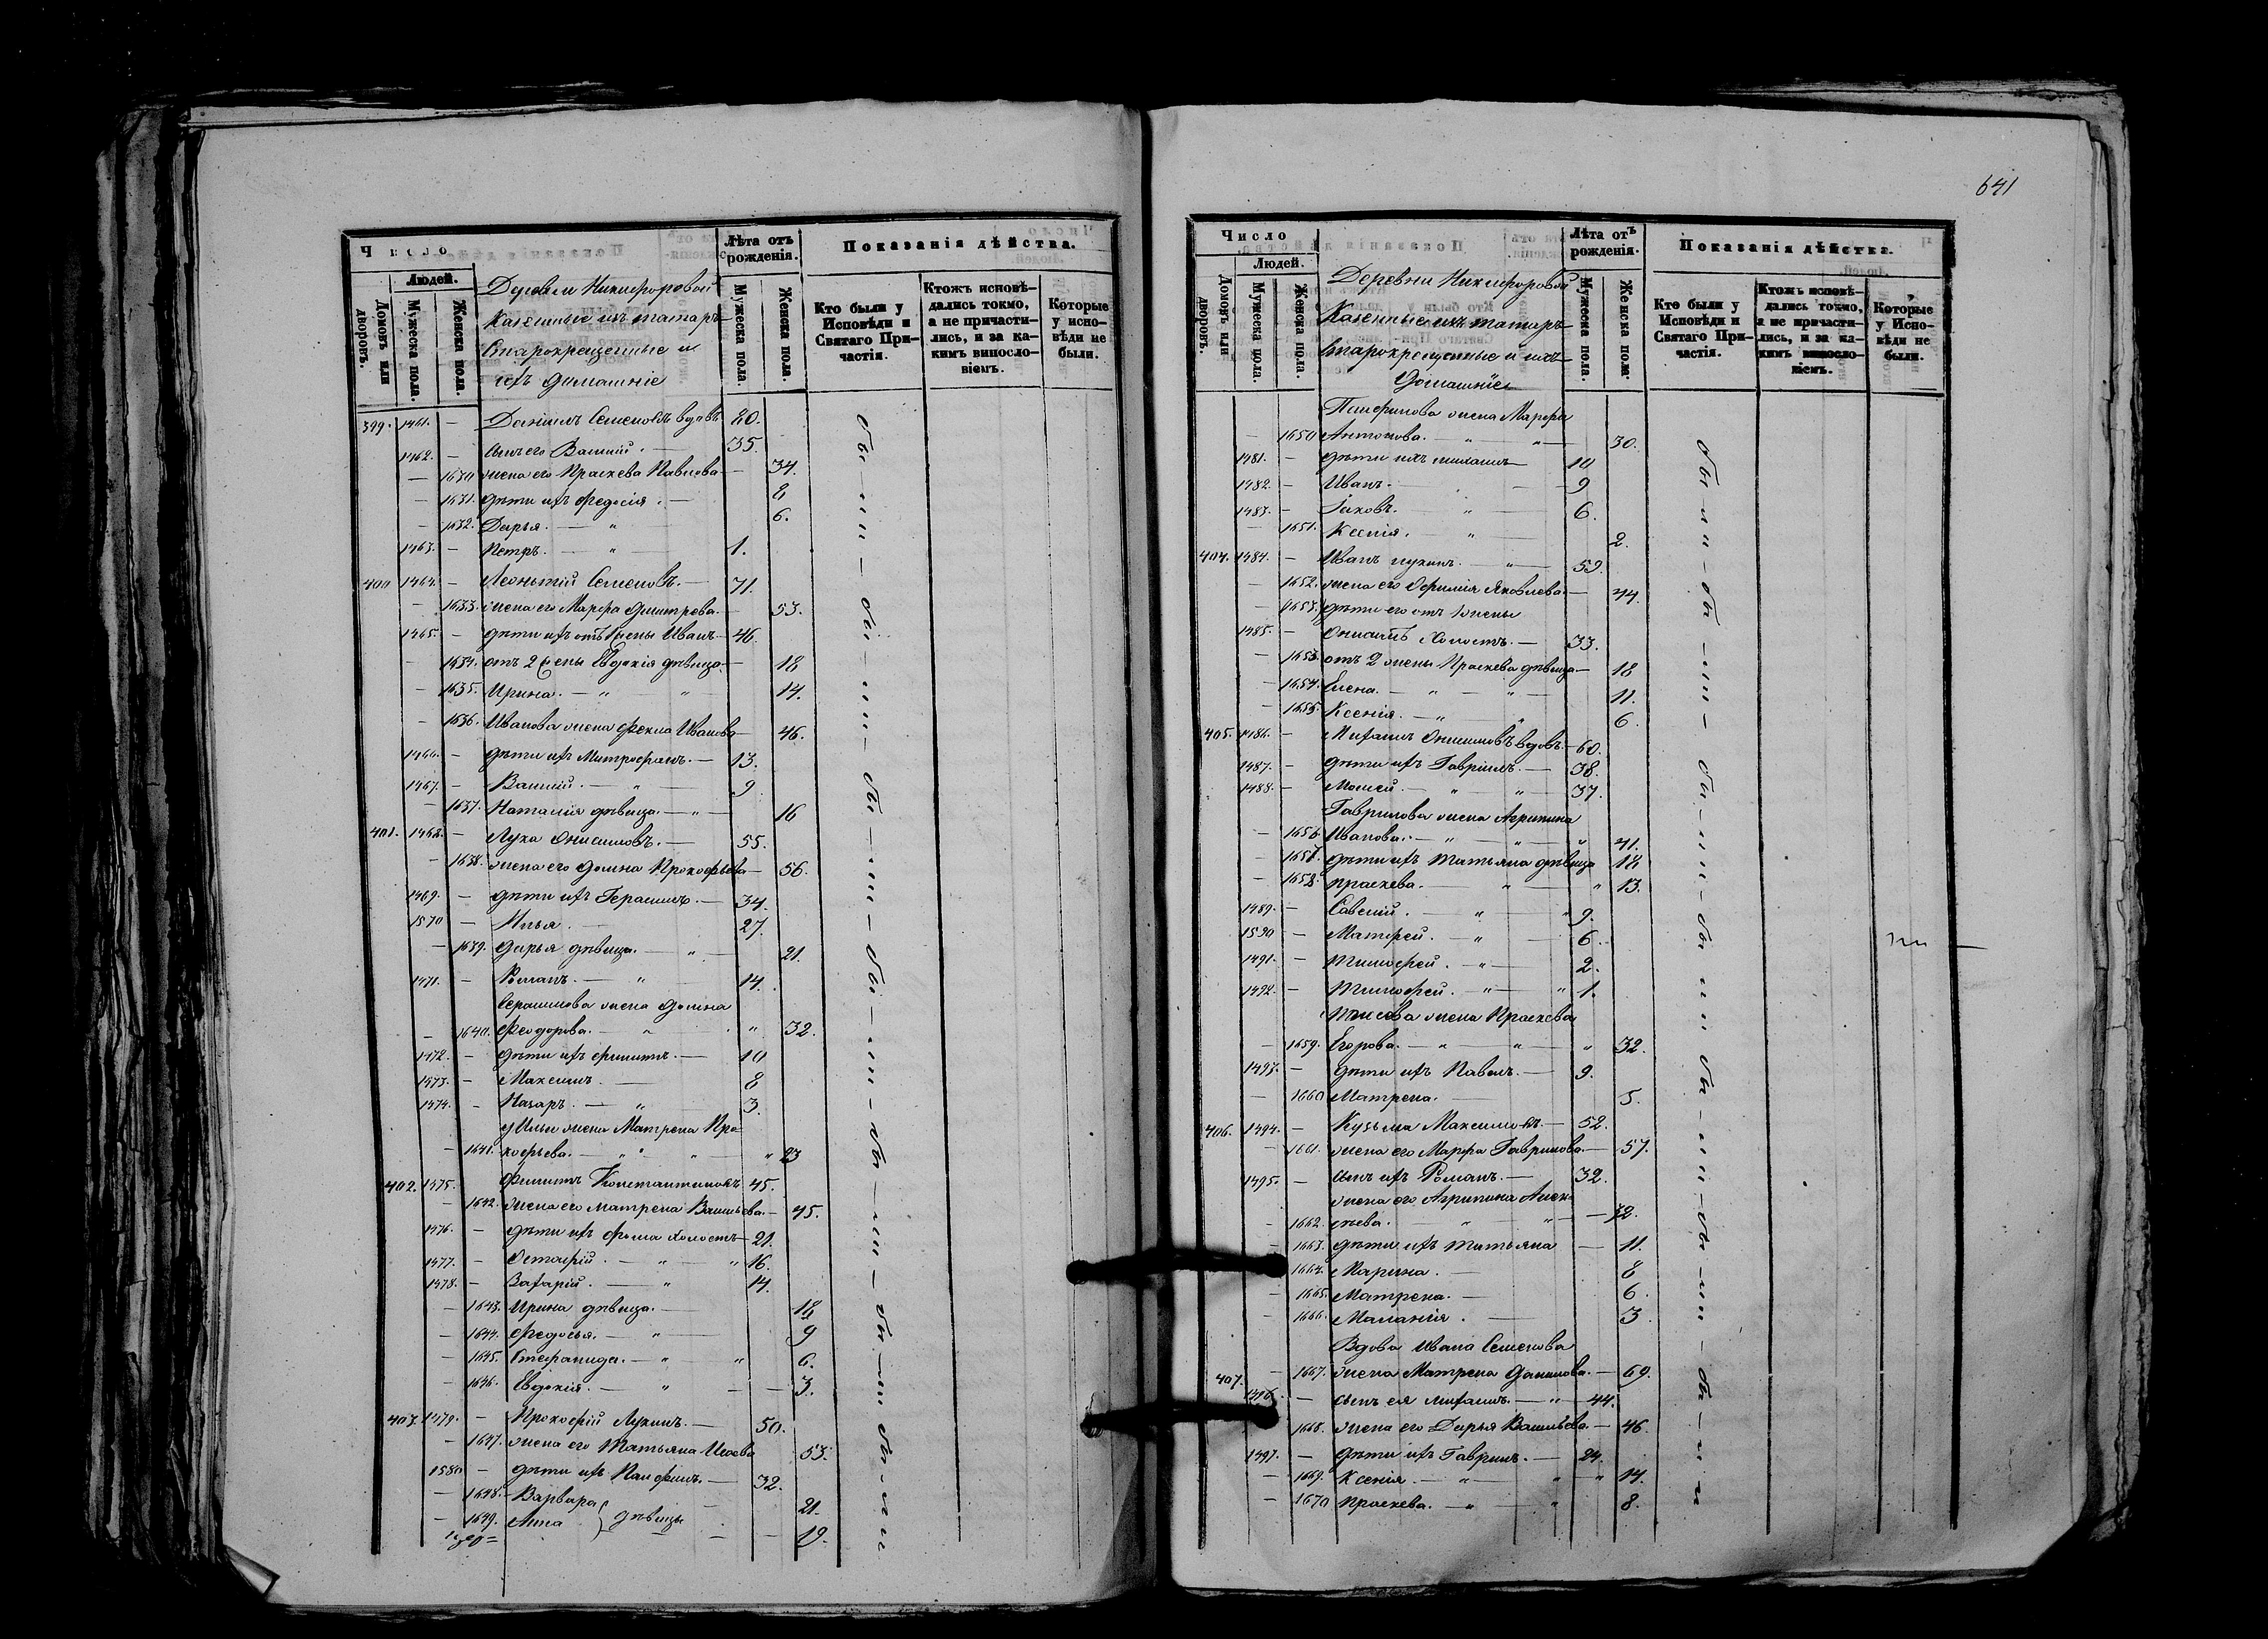 Число
Людей.
Домовъ или дворовъ.
Мужеска пола.
Женска пола.
Деревни Никифоровой
Казенные изъ татаръ
Старокрещенные и
ихъ домашніе
Лѣта отъ рожденія.
Мужеска пола.
Женска пола.
Показанія дѣйства.
Кто были у Исповѣди и Святаго При-
частія.
Ктожъ исповѣ-
дались токмо,
а не причасти-
лись, и за ка-
кимъ винословіемъ.
Которые у испо-
вѣди не были.
399. 1461. — Даніилъ Семеновъ вдовъ 80.
1462. — сынъ его Василій. — 35.
— 1630 жена его Праскева Павлова — 34.
— 1631. дѣти ихъ Федосія. — 8
— 1632. Дарья. — " 6.
1463. — Петръ. — " 1.
400 1464. — Леонтій Семеновъ. — 71.
— 1633. жена его Марфа Дмитрева. — 53.
1465. — дѣти ихъ отъ 1 жены Иванъ — 46.
— 1634. отъ 2 жены Евдокія дѣвица — 18
— 1635. Ирина. — " " 14.
— 1636. Иванова жена Фекла Иванова — 46.
1466. — дѣти ихъ Митрофанъ. — 13.
1467. — Василій. — " — 9
— 1637. Наталія дѣвица. — " — 16
401. 1468. — Лука Онисимовъ. — 55.
— 1638. жена его Домна Прокофьева — 56.
1469. — дѣти ихъ Герасимъ. — 34.
1570 — Илья. — 27.
— 1639. Дарья дѣвица. — " — 21.
1471. — Романъ. — " 14.
Герасимова жена Домна
— 1640. Феодорова. — " " 32.
1472. — дѣти ихъ Филипъ. — 10
1473. — Максимъ. — 8
1474. — Назаръ. — " 3.
у Ильи жена Матрена Про-
— 1641. кофьева. — " " " 23
402. 1475. Филипъ Константиновъ 45.
— 1642. жена его Матрена Васильева. — 45.
1476. — дѣти ихъ Фома холостъ — 21.
1477. — Остафій. — " " 16.
1478. — Захарій. — " 14.
— 1643. Ирина дѣвица. — 18
— 1644. Федосья. — " 9
— 1645. Стефанида. — " " 6.
— 1646. Евдокія. — " — 3.
403. 1479. — Прокофій Лукинъ. — 50.
— 1647. жена его Татьяна Исаева 53.
1580 — дѣти ихъ Панфилъ. — 32.
— 1648. Варвара } дѣвицы 21.
— 1649. Анна 19.
641
Число
Людей.
Домовъ или дворовъ.
Мужеска пола.
Женска пола.
Деревни Никифоровой
Казенные изъ татаръ
Старокрещенные и ихъ
домашніе
Лѣта отъ рожденія.
Мужеска пола.
Женска пола.
Показанія дѣйства.
Кто были у Исповѣди и Святаго При-
частія.
Ктожъ исповѣ-
дались токмо,
а не причасти-
лись, и за ка-
кимъ винословіемъ.
Которые у Испо-
вѣди не были.
Панфилова жена Марфа
— 1650 Антонова. — " " — 30.
1481. — дѣти ихъ Михаилъ — 10
1482. — Иванъ. — 9
1483. — Іаковъ. " — 6.
— 1651. Ксенія. — " — 2.
404. 1484. — Иванъ Лукинъ. — " — 59.
— 1652. жена его Ефимія Яковлева — 44.
дѣти его отъ 1 жены
1485. — Онисимъ холостъ. — 33.
— 1653. отъ 2 жены Праскева дѣвица — 18
— 1654. Елена. — " — " 11.
— 1655. Ксенія. — " " 6.
405. 1486. — Михаилъ Онисимовъ вдовъ. — 60.
1487. — дѣти ихъ Гавріилъ. — 38.
1488. — Моисей. — " " 37.
Гаврилова жена Агрипина
— 1656. Иванова. — " " " 41.
— 1657. дѣти ихъ Татьяна дѣвица 18
— 1658. Праскева. — " — " 13.
1489. — Савелій. — " — " 9.
1590 — Матфей. — " 6.
1491. — Тимофей. — " — 2.
1492. — Тимофей. — " — " 1.
Моисеева жена Праскева
— 1659. Егорова. — " — " " 32.
1493. — дѣти ихъ Павелъ. — 9.
— 1660 Матрена. — 5.
406. 1494. — Кузьма Максимовъ. — 52.
— 1661. жена его Марфа Гаврилова — 57.
1495. — сынъ ихъ Романъ. — 32.
жена его Агрипина Алек-
— 1662. сѣева. — " — " — 32.
— 1663. дѣти ихъ Татьяна — 11.
— 1664. Марина. — 8
— 1665. Матрена. — 6.
— 1666. Маланія. — 3.
Вдова Ивана Семенова
407. — 1667. жена Матрена Данилова. — 69.
1496. — сынъ ея Михаилъ. — " — 44.
— 1668. жена его Дарья Васильева. — 46.
1497. — дѣти ихъ Гаврилъ. — 24.
— 1669. Ксенія. — " — " " 14.
— 1670 Праскева. — " — " 8.